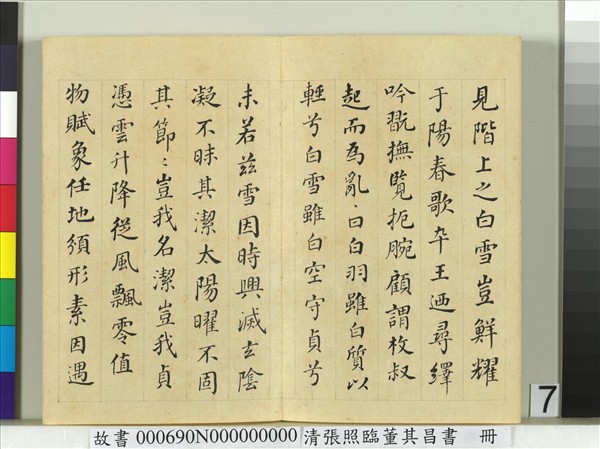 見階上之白雪豈鮮耀
于陽春歌卒王迺尋繹
吟翫撫覽扼腕顧謂枚叔
起而為亂曰白羽雖白質以
輕兮白雪雖白空守貞兮
未若茲雪因時興滅玄陰
凝不昧其潔太陽曜不固
其節〻豈我名潔豈我貞
憑雲升降從風飄零值
物賦象任地須形素因遇
7
故書 000690N000000000 清張照臨董其昌書 冊